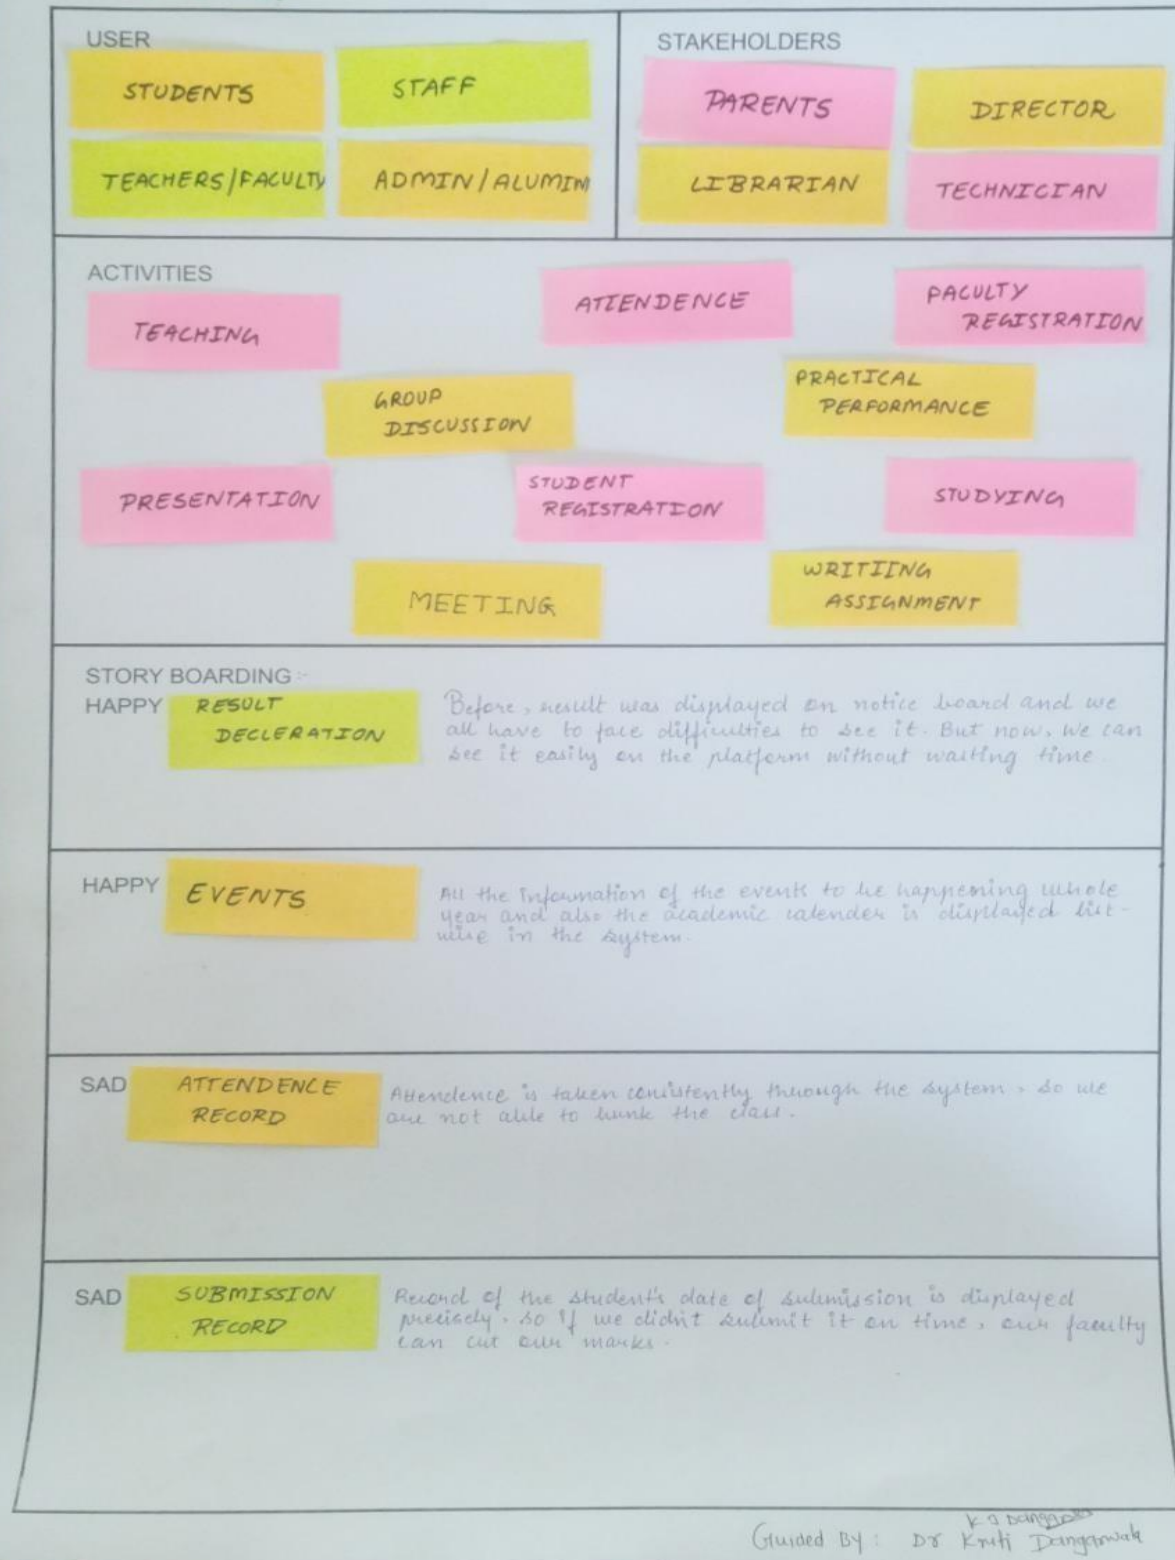 USER
STUDENTS
STAFF
TEACHERS/FACULTY
ADMIN/ALUMIM
STAKEHOLDERS
PARENTS
DIRECTOR
LIBRARIAN
TECHNICIAN
ACTIVITIES
TEACHING
ATTENDENCE
FACULTY
REGISTRATION
GROUP
DISCUSSION
PRACTICAL
PERFORMANCE
PRESENTATION
STUDENT
REGISTRATION
STUDYING
MEETING
WRITIING
ASSIGNMENT
STORY BOARDING :-
HAPPY
RESULT
DECLERATION
Before, result was displayed on notice board and we
all have to face difficulties to see it. But now, we can
see it easily on the platform without wasting time.
HAPPY
EVENTS
All the information of the events to be happening whole
year and also the academic calender is displayed list-
wise in the system.
SAD
ATTENDENCE
RECORD
Attendence is taken consistently through the system, so we
are not able to bunk the class.
SAD
SUBMISSION
RECORD
Record of the student's date of submission is displayed
precisely. so if we didn't submit it on time, our faculty
can cut our marks.
Guided By : Dr Kruti Dangarwala